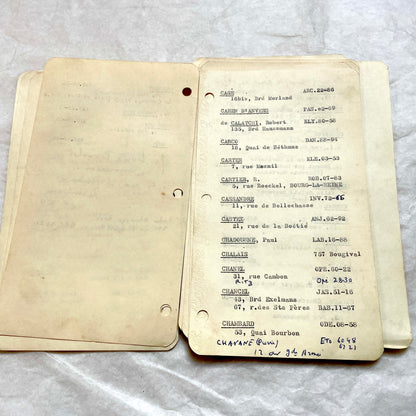 CAGE ARC.22-86
16bis, Brd Morland
CAHEN D'ANVERS PAS.02-69
de CALATCHI, Robert ELY.80-58
155, Brd Haussmann
CARCO DAN.88-94
18, Quai de Béthune
CARTER ELE.03-53
7, rue Mesnil
CARTIER, R. ROB.07-83
5, rue Roeckel, BOURG-LA-REINE
CASSANDRE INV.72-
11, rue de Bellechasse
CASTEL ANJ.02-92
21, rue de la Boétie
CHADOURNE, Paul LAB.16-88
CHALAIS 757 Bougival
CHANEL OPE.60-22
31, rue Cambon
Ritz OPE 28-30
CHANCEL JAS.51-16
43, Brd Exelmans
67, r.des Sts Pères BAB.11-67
CHAMBARD ODE.08-58
53, Quai Bourbon
CHAVANE ETO 60 48
12 av